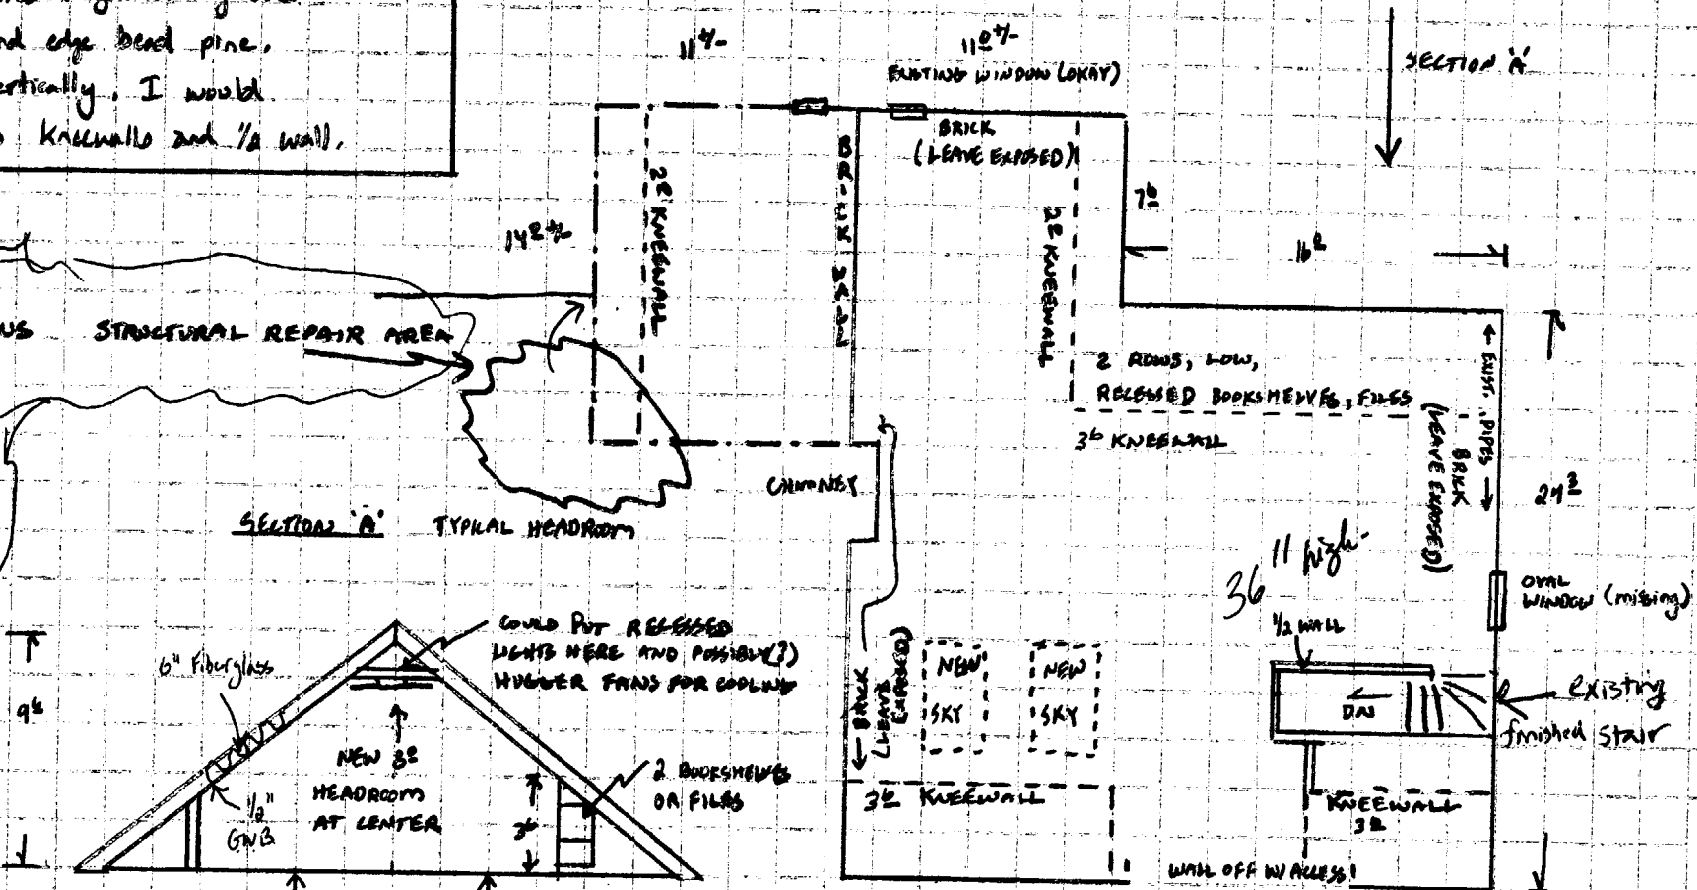 and edge bead pine.
vertically. I would
kneewalls and 1/2 wall.
11 +/-
11 0 +/-
EXISTING WINDOW (OKAY)
SECTION 'A'
BRICK
(LEAVE EXPOSED)
BRICK WALL
KNEEWALL
KNEEWALL
14 2 +/-
7 6
16 2
STRUCTURAL REPAIR AREA
2 ROWS, LOW,
RECESSED BOOKSHELVES, FILES
3 6 KNEEWALL
← EXIST. PIPES →
BRICK
(LEAVE EXPOSED)
24 3
CHIMNEY
SECTION 'A' TYPICAL HEADROOM
36" high
1/2 WALL
OVAL
WINDOW (missing)
COULD PUT RECESSED
LIGHTS HERE AND POSSIBLY(?)
HUGGER FANS FOR COOLING
6" Fiberglass
9 6
NEW
HEADROOM
AT CENTER
1/2"
GWB
3 6
2 BOOKSHELVES
OR FILES
← BRICK
(LEAVE
EXPOSED)
NEW
SKY
NEW
SKY
DN
existing
finished stair
KNEEWALL
KNEEWALL
WALL OFF W/ACCESS!